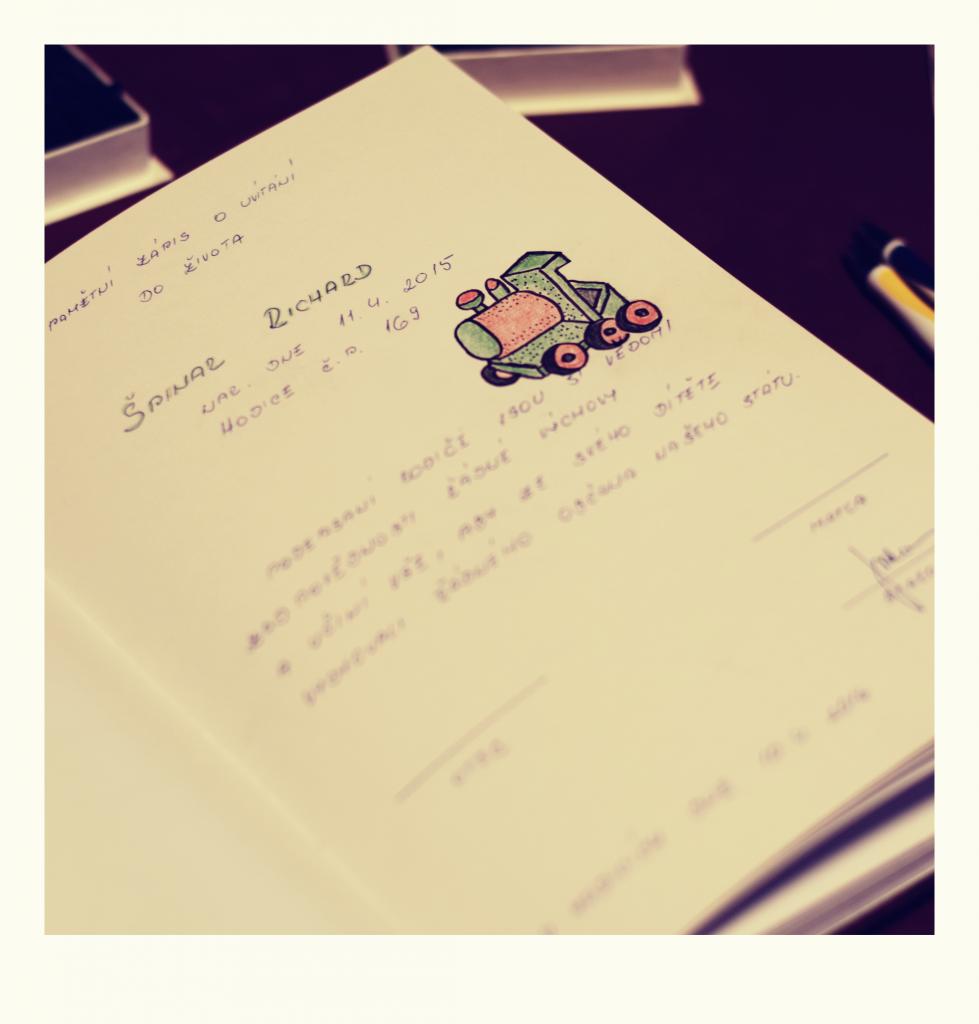 PAMĚTNÍ ZÁPIS O UVÍTÁNÍ
DO ŽIVOTA
ŠPINAR RICHARD
NAR. DNE 11. 4. 2015
HODICE Č.P. 169
PODEPSANÍ RODIČE JSOU SI VĚDOMI
ZODPOVĚDNOSTI ŘÁDNÉ VÝCHOVY
A UČINÍ VŠE, ABY ZE SVÉHO DÍTĚTE
VYCHOVALI ŘÁDNÉHO OBČANA NAŠEHO STÁTU.
MATKA
OTEC